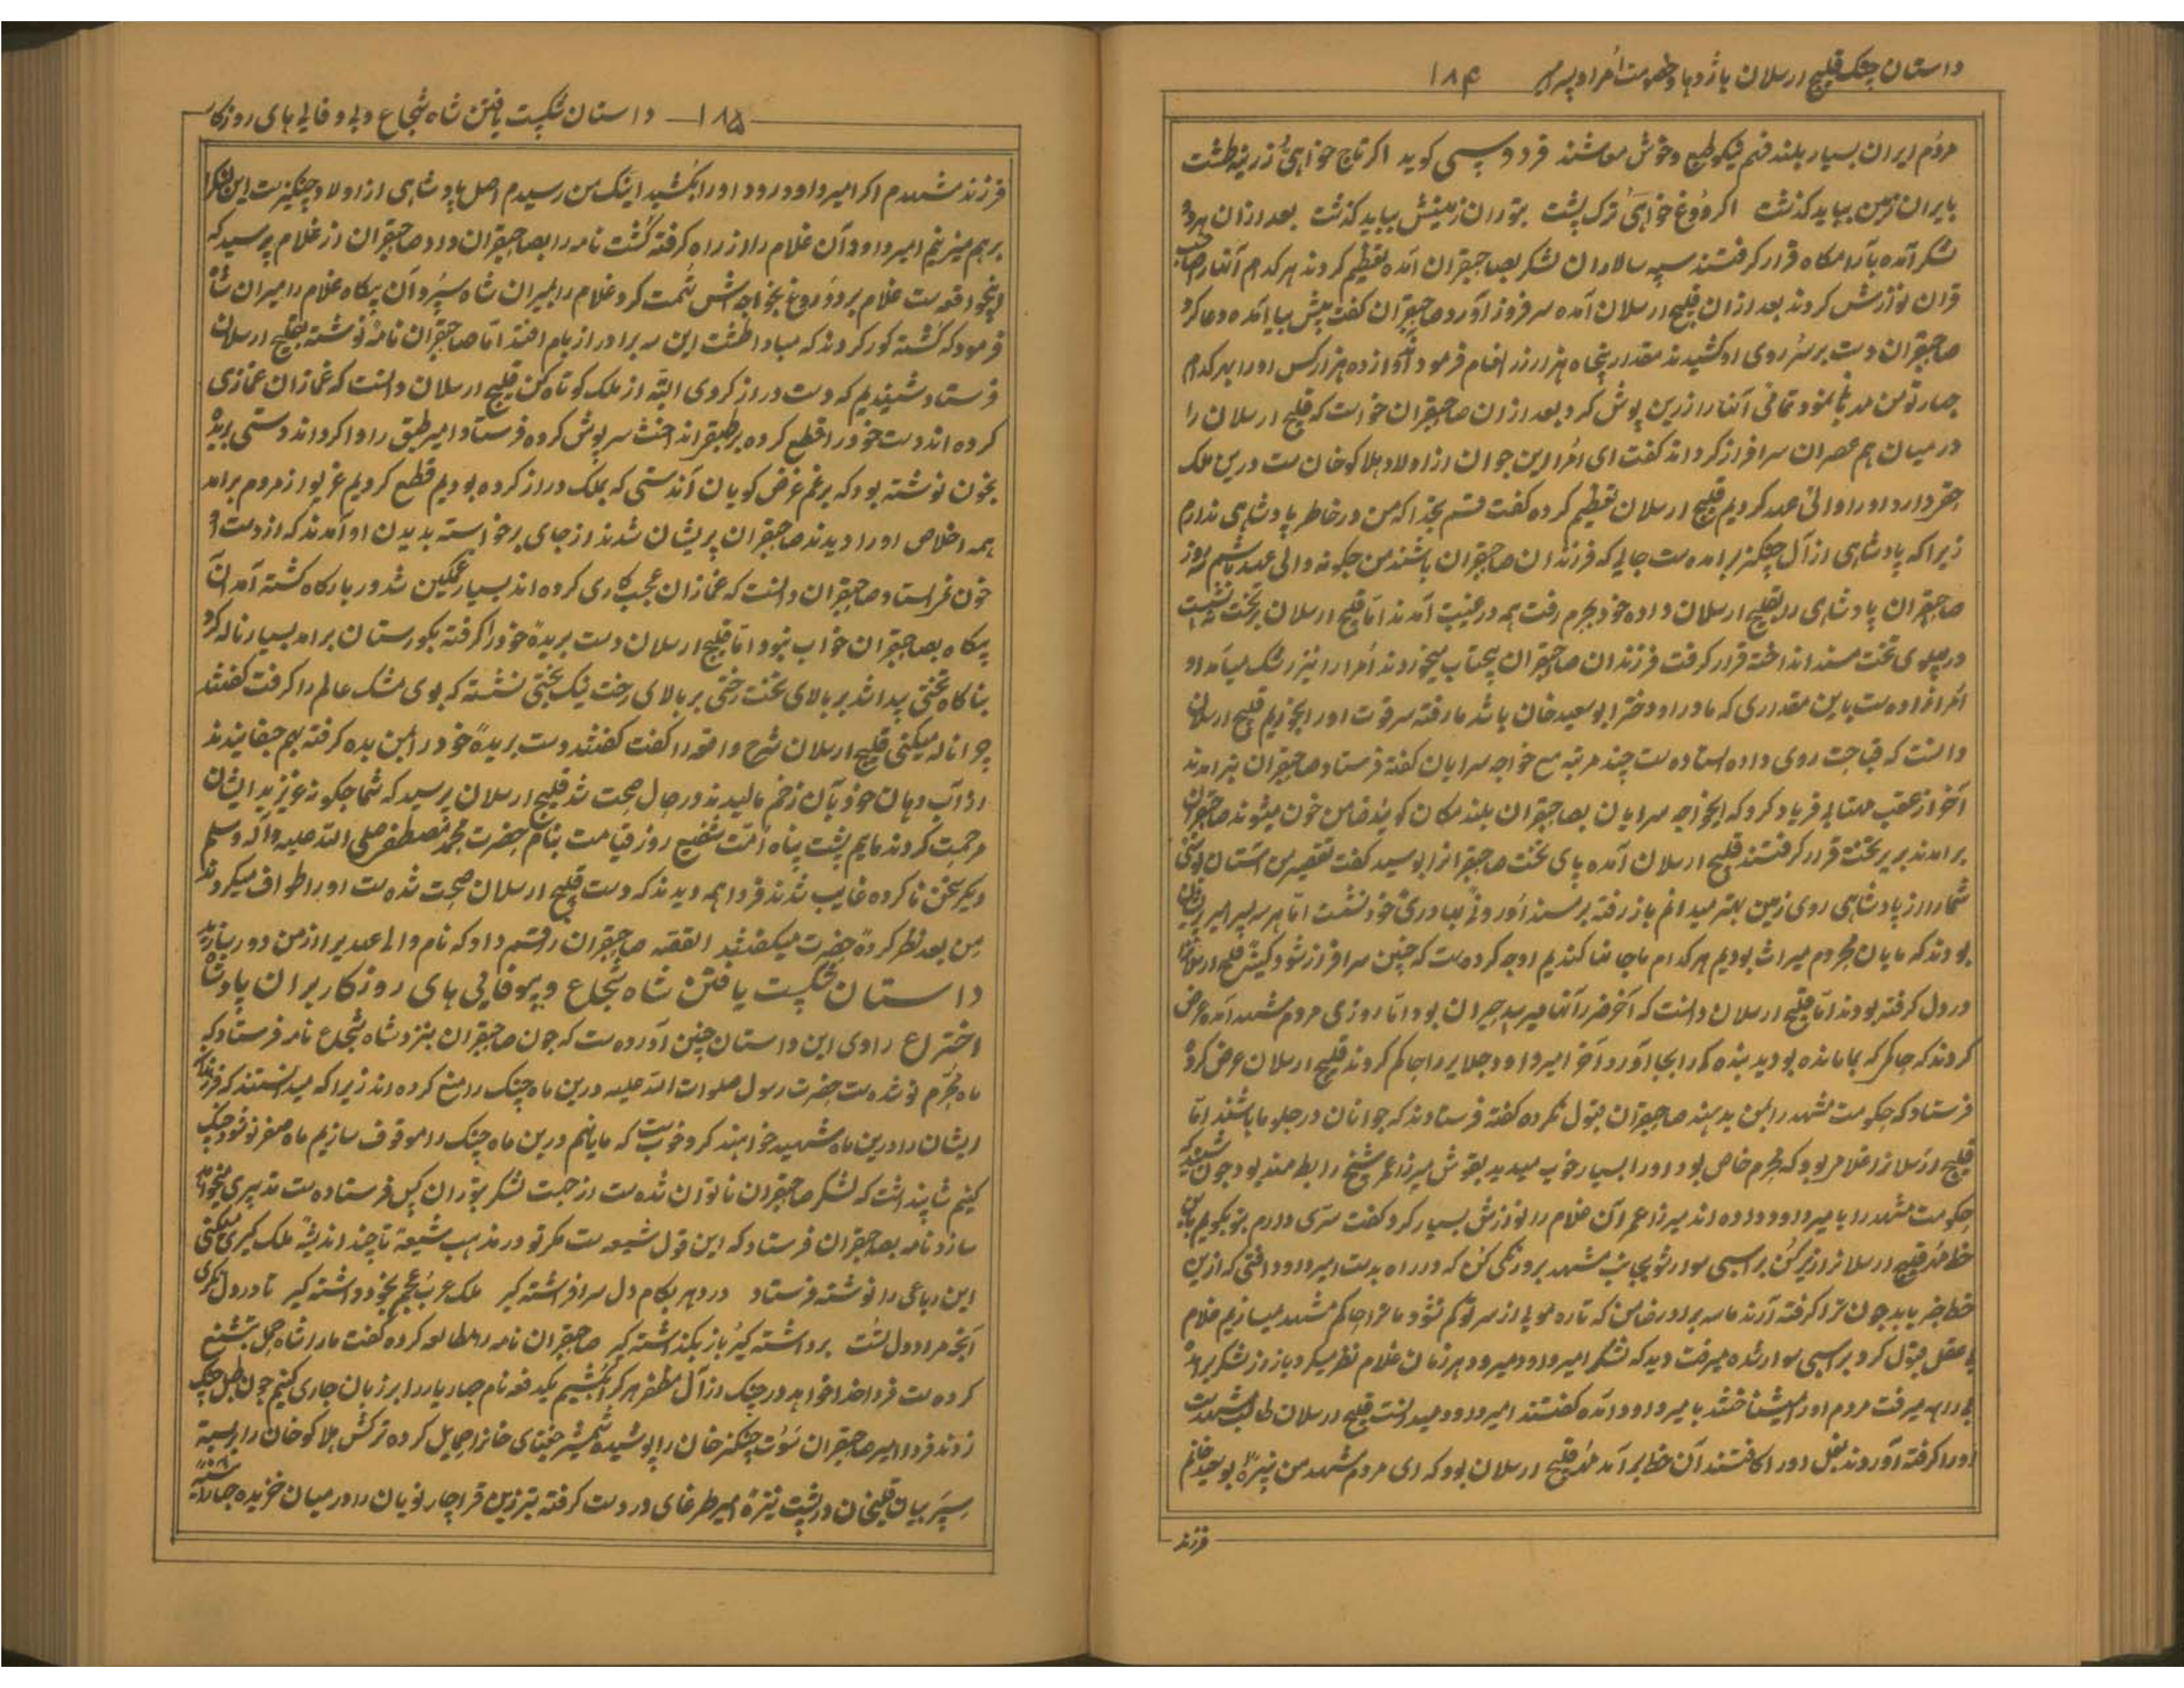 داستان جنک قلیچ ارسلان با اژدها و خصومت اُمراء و پسر میر ۱۸۴
مردُم ایران بسیار بلند فهم نیکو طبع و خوش معاشند فردوسی کوید اکر تاج خواهی زرینه طشت
بایران زمین بباید کذشت اکر دوغ خواهی ترک پشت بتوران زمینش بباید کذشت بعد ازان هر دو
لشکر آمده بآرامکاه قرار کرفتند سپه سالاران لشکر بصاحبقران آمده تعظیم کردند هر کدام آنها را صاحب
قران نوازش کردند بعد ازان قلیچ ارسلان آمده سر فروز آورد صاحبقران کفت پیش بیا آمده دعا کرد
صاحبقران دست بر سر روی او کشیدند مقدار پنجاه هزار زر انعام فرمود آوازه ده هزار کس او را بهر کدام
چهار تومن مدبغا نمود تمامی آنها را زرین پوش کرد بعد ازان صاحبقران خواست که قلیچ ارسلان را
در میان هم عصران سرافراز کرداند کفت ای اُمرا این جوان از اولاد هلاکو خان ست درین ملک
حق دارد او را والی عهد کردیم قلیچ ارسلان تعظیم کرده کفت قسم بخدا که من در خاطر پادشاهی ندارم
زیرا که پادشاهی از آل چنکیز برامده ست جایی که فرزندان صاحبقران باشند من چکونه والی عهد باشم سه روز
صاحبقران پادشاهی را بقلیچ ارسلان داده خود بحرم رفت همه در غیبت آمدند امّا قلیچ ارسلان بر تخت نه نشست
در پهلوی تخت مسند انداخته قرار کرفت فرزندان صاحبقران پیچتاب میخوردند اُمرا را نیز رشک میامد او
اُمرا زاده ست باین مقداری که مادر او دختر ابو سعید خان باشد ما رفته سر قوت او را بخوریم قلیچ ارسلان
دانست که قباحت روی داده استاده ست چند مرتبه مع خواجه سرایان کفته فرستاد صاحبقران نبرامدند
آخر از عقب مهتابی فریاد کرد که ایخواجه سرایان بصاحبقران بلند مکان کویند ضامن خون میشوند صاحبقران
برامدند بر تخت قرار کرفتند قلیچ ارسلان آمده پای تخت صاحبقرانرا بوسید کفت تقصیر من آستان بوسی
شما را از پادشاهی روی زمین بهتر میدانم باز رفته بر مسند اُوروغ بهادری خود نشست امّا هر سه پسر امیر پریشان
بودند که مایان محروم میراث بودیم هر کدام ما جانها کندیم او چه کرده ست که چنین سرافراز شود کینش قلیچ ارسلان را
در دل کرفته بودند امّا قلیچ ارسلان دانست که آخر ضرر آنها میرسد حیران بود امّا روزی مردم مشهد آمده عرض
کردند که حاکم که بما مانده بودید بنده کی را بجا آورد آخر امیر داود جلایر را حاکم کردند قلیچ ارسلان عرض کرد
فرستاد که حکومت مشهد را بمن بدهند صاحبقران قبول نکرده کفته فرستادند که جوانان در جلو ما باشند امّا
قلیچ ارسلانرا غلامی بود که محرم خاص بود او را بسیار خوب میدید بقوش میرزا عمر شیخ رابطه مند بود چون شنید که
حکومت مشهد را بامیر داود داده اند میرزا عمر آن غلام را نوازش بسیار کرد کفت سرّی دارم بتو بکویم باین
خط مُهر قلیچ ارسلانرا زیر کُن بر اسبی سوار شو بجانب مشهد برو زنکی کُن که در راه بدست امیر داود افتی که ازین
خط خبر یابد چون ترا کرفته آرند ما سه برادر ضامن که تاره مویی از سر تو کم نشود ما ترا حاکم مشهد میسازیم غلام
بی عقل قبول کرد بر اسبی سوار شده میرفت دید که لشکر امیر داود میرود هر زمان غلام نظر میکرد باز از لشکر برامده
بی راهه میرفت مردم او را میشناختند بامیر داود آمده کفتند امیر داود میدانست قلیچ ارسلان طالب مشهدست
او را کرفته آوردند بغل او را کافتند آن خط برآمد مُهر قلیچ ارسلان بود که ای مردم مشهد من نبیرهٔ بو سعید خانم
فرزند
۱۸۵ داستان شکست یافتن شاه شجاع و بی وفایی های روزکار
فرزند مشهدم اکر امیر داود رود او را بکشید اینک من رسیدم اصل پادشاهی از اولاد چنکیزست این لشکر را
برهم میزنیم امیر داود آن غلام را از راه کرفته کشت نامه را بصاحبقران داد صاحبقران از غلام پرسید که
اینچه واقعه ست غلام بر دروغ بخواجه اش تهمت کرد غلام را بمیران شاه سپرد آن پیکاه غلام را میران شاه
فرمود که کشته کور کردند که مبادا طشت این سه برادر از بام افتد امّا صاحبقران نامه نوشته بقلیچ ارسلان
فرستاد شنیدیم که دست دراز کردی البته از ملک کوتاه کن قلیچ ارسلان دانست که غمازان غمازی
کرده اند دست خود را قطع کرده بر طبق انداخت سرپوش کرده فرستاد امیر طبق را وا کرداند دستی بریده
بخون نوشته بود که برغم غرض کویان آندستی که بملک دراز کرده بودیم قطع کردیم غریو از مردم برامد
همه اخلاص او را دیدند صاحبقران پریشان شدند از جای برخواسته بدیدن او آمدند که از دست او
خون نمیراستاد صاحبقران دانست که غمازان عجب کاری کرده اند بسیار غمکین شد در بارکاه کشته آمد آن
پیکاه بصاحبقران خواب نبود امّا قلیچ ارسلان دست بریدهٔ خود را کرفته بکورستان برامد بسیار ناله کرد
بناکاه تختی پیدا شد بر بالای تخت رختی بر بالای رخت نیک بختی نشسته که بوی مشک عالم را کرفت کفتند
چرا ناله میکنی قلیچ ارسلان شرح واقعه را کفت کفتند دست بریدهٔ خود را بمن بده کرفته بهم چفانیدند
از آب دهان خود بآن زخم مالیدند در حال صحت شد قلیچ ارسلان پرسید که شما چکونه عزیزید ایشان
مرحمت کردند مایم پشت پناه اُمّت شفیع روز قیامت بنام حضرت محمّد مُصطفی صلی الله علیه و آله وسلم
دیکر سخن ناکرده غایب شدند فردا همه دیدند که دست قلیچ ارسلان صحت شده ست او را طواف میکردند
مِن بعد نظر کردهٔ حضرت میکفتند القصه صاحبقران را قسم داد که نام والی عهد را از من دور سازید
داستان شکست یافتن شاه شجاع و بیوفایی های روزکار بران پادشاه
اختراع راوی این داستان چنین آورده ست که چون صاحبقران بنزد شاه شجاع نامه فرستاد که
ماه محرّم نو شده ست حضرت رسول صلوات الله علیه درین ماه جنک را منع کرده اند زیرا که میدانستند که فرزندان
ایشان را درین ماه شهید خواهند کرد خوبست که مایانهم درین ماه جنک را موقوف سازیم ماه صفر نو شود جنک
کنیم شاه پنداشت که لشکر صاحبقران ناتوان شده ست از جهت لشکر بتوران کس فرستاده ست تدبیری میخواهد
سازد نامه بصاحبقران فرستاد که این قول شیعه ست مکر تو در مذهب شیعهٔ تا چند اندیشهٔ ملک کیری میکنی
این رباعی را نوشته فرستاد در دهر بکام دل سرافراشته کیر ملک عرب عجم بخود داشته کیر تا در دل تکری
آنچه مراد دل تست برداشته کیر باز بکذاشته کیر صاحبقران نامه را مطالعه کرده کفت ما را شاه جهل تشنیع
کرده ست فردا خدا خواهد در جنک از آل مظفر هر کرا بکشیم یکدفعه نام چهار یار را بر زبان جاری کنیم چون طبل جنک
زدند فردا امیر صاحبقران سوت چنکیز خان را پوشیده شمشیر جغتای خانرا حمایل کرده ترکش هلاکو خان را بسته
سپر بیان قلیخان در پشت نیزهٔ امیر طرغای در دست کرفته تبرزین قراچار نویان را در میان خزیده